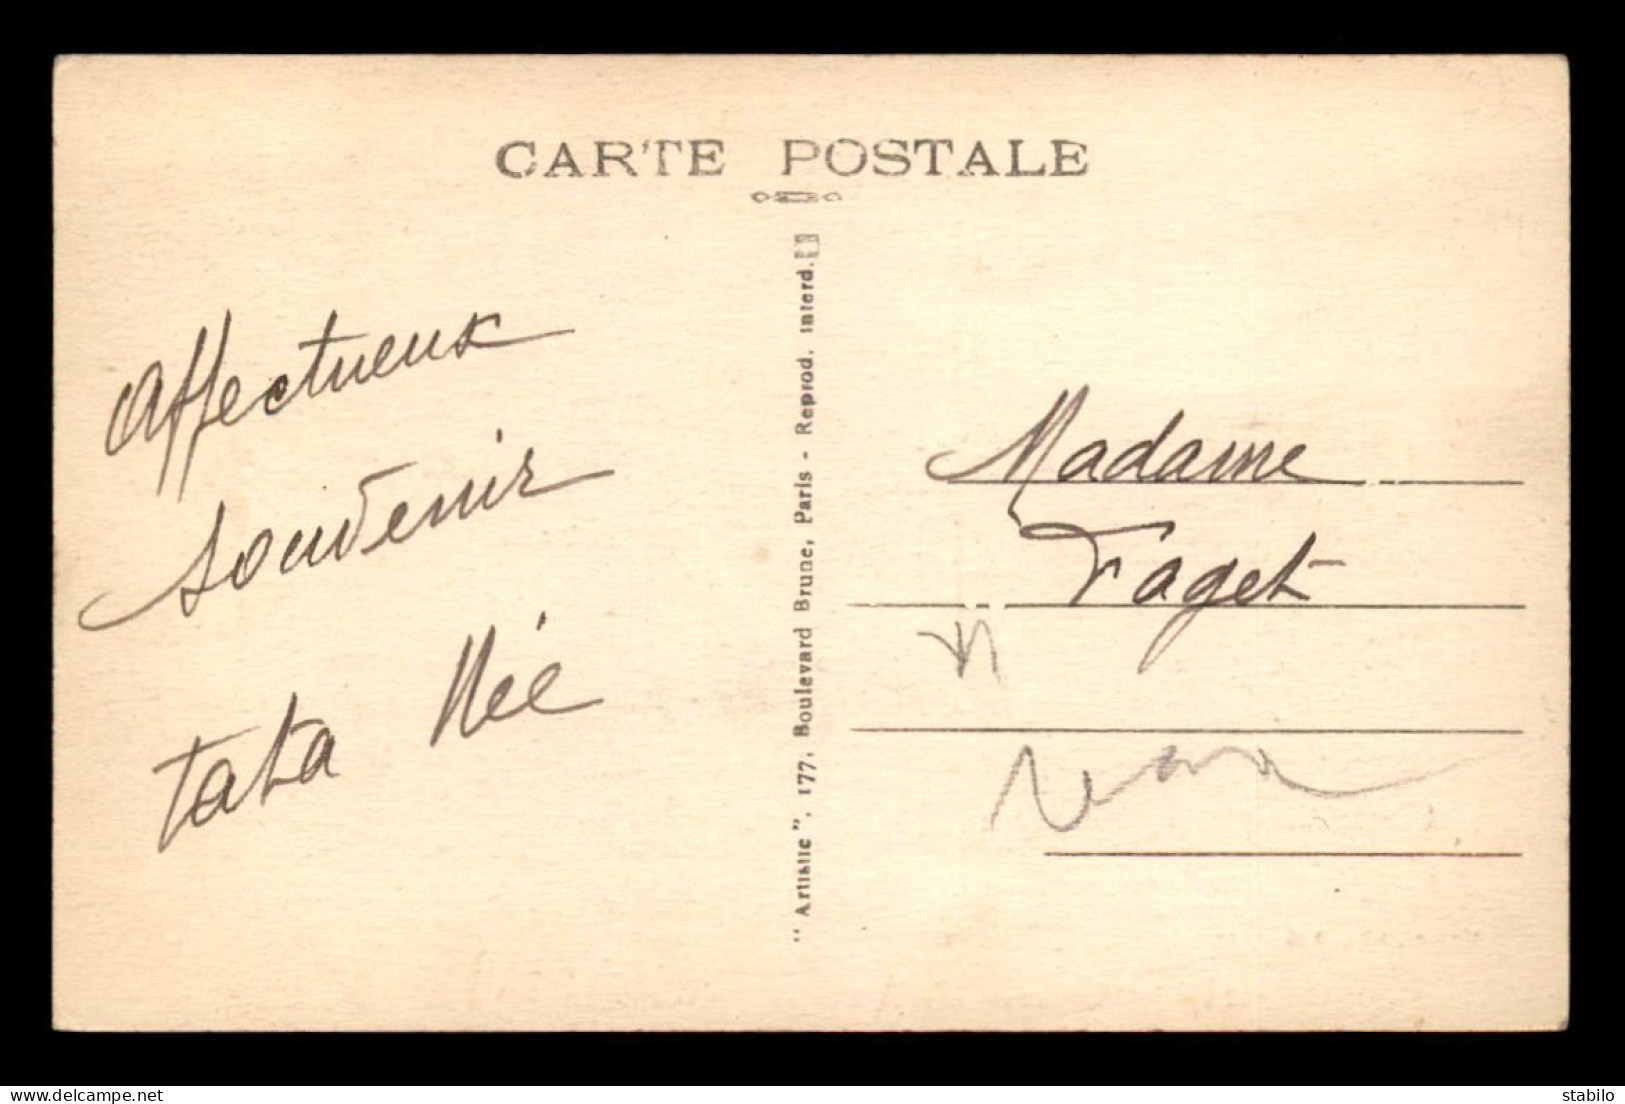 CARTE POSTALE
Affectueux
souvenir
tata Née
"Artistic", 177, Boulevard Brune, Paris - Reprod. interd.
Madame
Faget
delcampe.net
stabilo